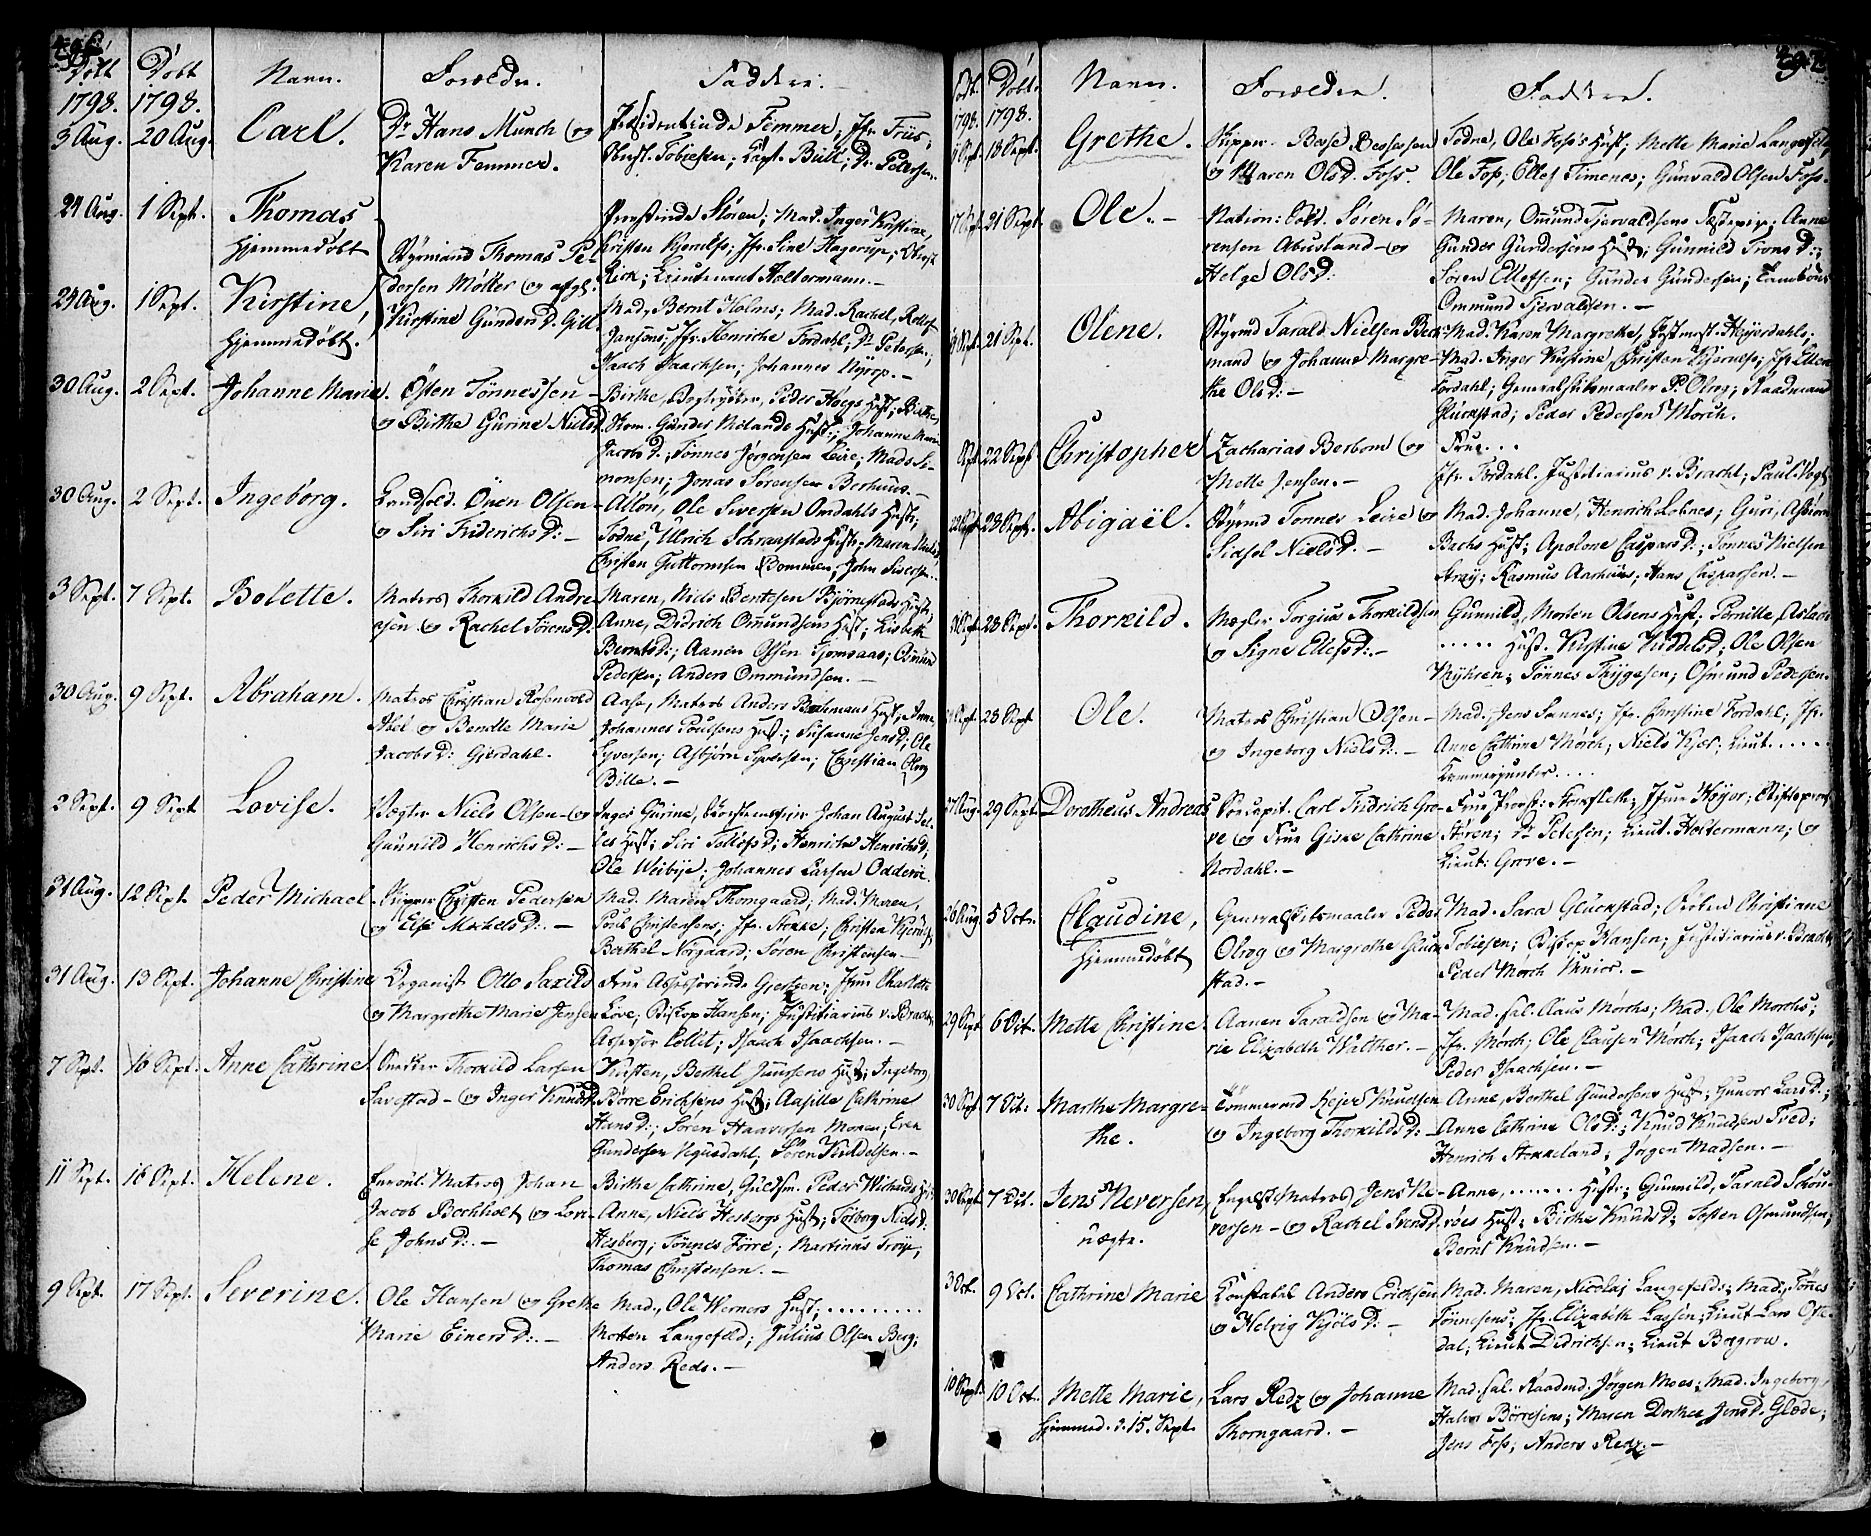 Født Døbt Navn. Forældre. Faddere.
1798. 1798.
3 Aug. 20 Aug. Carl. Dr Hans Munch og
Karen Femmer.
Præsidentinde Femmer, Jfr. Friis,
Tobiesen; Capt. Bull; Dr Petersen.
24 Aug. 1 Sept. Thomas
hjemmedøbt
Styrmand Thomas Pe-
dersen Møller og afgl.
Kirstine Gundersd. Gill
Provstinde Støren; Mad. Inger Kirstine,
Kristen Kjerulfs; Jfr. Sine Hagerup;
Kirk; Lieutenant Holtermann.-
24 Aug. 1 Sept. Kirstine,
hjemmedøbt.
Mad. Bernt Holms; Mad. Rachel,
Jansons; Jfr. Henriche Fordahl; Dr Petersen;
Isaach Isaachsen; Johannes Nyrop.-
30 Aug. 2 Sept. Johanne Marie. Østen Tønnessen
og Birthe Gurine Nielsd.
Birthe, Bogtrykker, Peder Høegs Hust; Birthe,
Gunder Molands Hust.; Johanne Marie
Jacobsd.; Tønnes Jørgensen Leire; Mads Si-
monsen; Jonas Sørensen Berhuus.-
30 Aug. 2 Sept. Ingeborg. Landsold. Önen Olsen
og Siri Friderichsd:-
Ole Siversen Omdahls Hust;
Todne, Ulrich Schranstads Hust; Maren
Christen Guttormsen Dommen; John Siversen.
3 Sept. 7 Sept. Bolette. Matros Thorkild Andre-
asen og Rachel Sörensd.
Maren, Niels Berntsen Bjørnestads Hust;
Anne, Didrich Omundsens Hust; Lisbeth
Berntsd:; Aanen Olsen Tjomsaas; Osmund
Pedersen; Anders Ommundsen.-
30 Aug. 9 Sept. Abraham. Matros Christian Rosenvold
Abel og Bendte Marie
Jacobsd: Gjerdahl.
Aase, Matros Anders Beckmans Hust; Anne,
Johannes Poulsens Hust.; Susanne Jensd; Ole
Syversen; Asbjørn Syversen; Christian Olrog
Bille.-
2 Sept. 9 Sept. Lovise. Vægter Niels Olsen og
Gunnild Henrichsd:-
Inger Gurine, Johan August
Hust; Siri Tellofsd; Henriche Henrichsd;
Ole Weibye; Johannes Larsen Odderøe.
31 Aug. 12 Sept. Peder Michael Skipper Christen Pedersen
og Else Michelsd:.-
Mad. Maren Thomgaard; Mad. Maren,
Povl Christensens; Jfr. Stokke; Christen Kjerulf;
Berthel Nørgaard; Søren Christensen-
31 Aug. 13 Sept. Johanne Christine Organist Otto Saxild
og Margrethe Marie Jensen
Frue Assessorinde Gjertzen; Jfr. Charlotte
Love; Biskop Hansen; Justitiarius v. Bracht;
Assessor Collet; Isaach Isaachsen.-
7 Sept. 16 Sept. Anne Cathrine. Snedker Thorkild Larsen
Savestad- og Inger Knudsd.
Kirsten, Berthel Jenssens Hust; Ingeborg
Børre Erichsens Hust; Aasille Cathrine
Hansd:; Søren Haaversen Moren; Even
Gundersen Vegusdahl; Søren Kittelsen.-
11 Sept. 16 Sept. Helene. Enroul. Matros Johan
Jacob Bochholt og Lovi-
se Johnsd:.-
Birthe Cathrine, Guldsm. Peder Wichards Hust;
Anne, Niels Hesbergs Hust; Tolborg Nielsd.
Hesberg; Tønnes Torre; Martinus Troye;
Thomas Christensen.-
9 Sept. 17 Sept. Severine. Ole Hansen og Grethe
Marie Einersd:.-
Mad., Ole Werners Hust; .........
Morten Langefeld; Julius Olsen Berg;
Anders Reds.-
Født. Døbt. Navn. Forældre. Faddere.
1798. 1798.
18 Sept. Grethe. Skipper Bese Bessesen
og Maren Olsd. Foss.
Todne, Ole Foss's Hust; Mette Marie Langefeld;
Ole Foss; Ellef Timenes; Gunvald Olsen Foss.
17 Sept. 21 Sept. Ole.- Nation: Sold. Søren Sø-
rensen Abusland og
Helge Olsd:
Maren, Omund Tjervaldsens Fæstepige; Anne
Gunder Gundersens Hust; Gunnild Tronsd:;
Søren Ellefsen; Gunder Gundersen; Tambour
Ommund Tjervaldsen.-
21 Sept. Olene. Styrmd Tarald Nielsen Beck-
mand og Johanne Margre-
the Olsd:-
Mad. Karen Margrethe, Postmest. Heyerdahls;
Mad. Inger Kirstine Christen Kjerulfs; Jfr. Ellen
Fordahl; Generalkrigsmaaler P. Olrog; Raadmand
Glückstad; Peder Pedersen Mørch.
22 Sept Christopher Zacharias Berbom og
Mette Jensen.-
Frue...
Jfr. Fordahl. Justitiarius v. Bracht; Paul Vogt.
23 Sept. Abigaël. Styrmd Tønnes Leire og
Sidsel Nielsd.-
Mad. Johanne, Henrich Lohnes; Guri, Asbiørn
Bachs Hust; Apolone Caspersd:; Tønnes Nielsen
Stray; Rasmus Aarhuus; Hans Caspersen.-
23 Sept. Thorkild. Mægler Torgius Thorkildsen
og Signe Ellefsd:-
Gunnild, Morten Olsens Hust; Pernille, Aslach
..... Hust. Kirstine Kiddelsd; Ole Olsen
Myhren; Tønnes Thygesen; Osmund Pedersen.
23 Sept Ole. Matros Christian Olsen-
og Ingeborg Nielsd:-
Mad. Jens Sannes; Jfr. Christine Fordahl; Jfr.
Anne Cathrine Mørch; Niels Kjær; Lieut......
Kammerjunker....
27 Aug. 29 Sept Dorotheus Andreas Carl Fridrich Gro-
ve og Frue Giske Cathrine
Nordahl.-
Frue Provst: Storsleth; Jfrue Høyer;
Støren; Dr Petersen; Lieut. Holtermann; og
Lieut: Grove.-
26 Aug 5 Octr. Claudine,
hjemmedøbt
General Peder
Olrog og Margrethe Gluck-
stad.-
Mad. Sara Gluckstad; Frøken Christiane
Tobiesen; Biskop Hansen; Justitiarius v. Bracht;
Peder Mørch Junior.-
29 Sept 6 Oct. Mette Christine. Aanen Taraldsen og Ma-
rie Elizabeth Walther.-
Mad. sal. Claus Mørchs; Mad. Ole Mørchs;
Jfr. Mørch; Ole Clausen Mørch; Isaach Isaachsen;
Peder Isaachsen.-
30 Sept 7 Oct: Marthe Margre-
the.
Tømmermd Reyer Knudsen
og Ingeborg Thorkildsd:-
Anne, Berthel Gundersens Hust; Gunvor Larsd:;
Anne Cathrine Olsd:; Knud Knudsen Tved;
Henrich Stokkeland; Jørgen Madsen.-
30 Sept 7 Oct. Jens Neversen,
uægte.
Matros Jens Ne-
versen- og Rachel Svendsd.
Anne, ....... Hust; Gunnild, Tarald Schou-
røes Hust; Birthe Knudsd; Tosten Osmundsen;
Bernt Knudsen.-
3 Oct. 9 Oct. Cathrine Marie Constabel Anders Erichsen
og Helvig Kjølsd:-
Mad. Maren, Nicolaj Langefelds; Mad., Tønnes
Tønnesens; Jfr. Elizabeth Lassen; Lieut Lars Ofte-
dal; Lieut Didrichsen; Lieut Begrow.
10 Sept. 10 Oct. Mette Marie,
hjemmed. d. 15. Sept.
Lars Redz og Johanne
Thorngaard.-
Mad. sal. Raadmd. Jørgen Moes; Mad. Ingeborg,
Halvor Børresens; Maren Dorthea Jensd. Glæde;
Jens Foss; Anders Redz.-